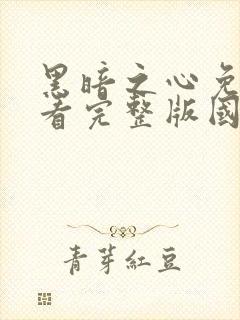 黑暗之心免
看完整版國
青芽紅豆